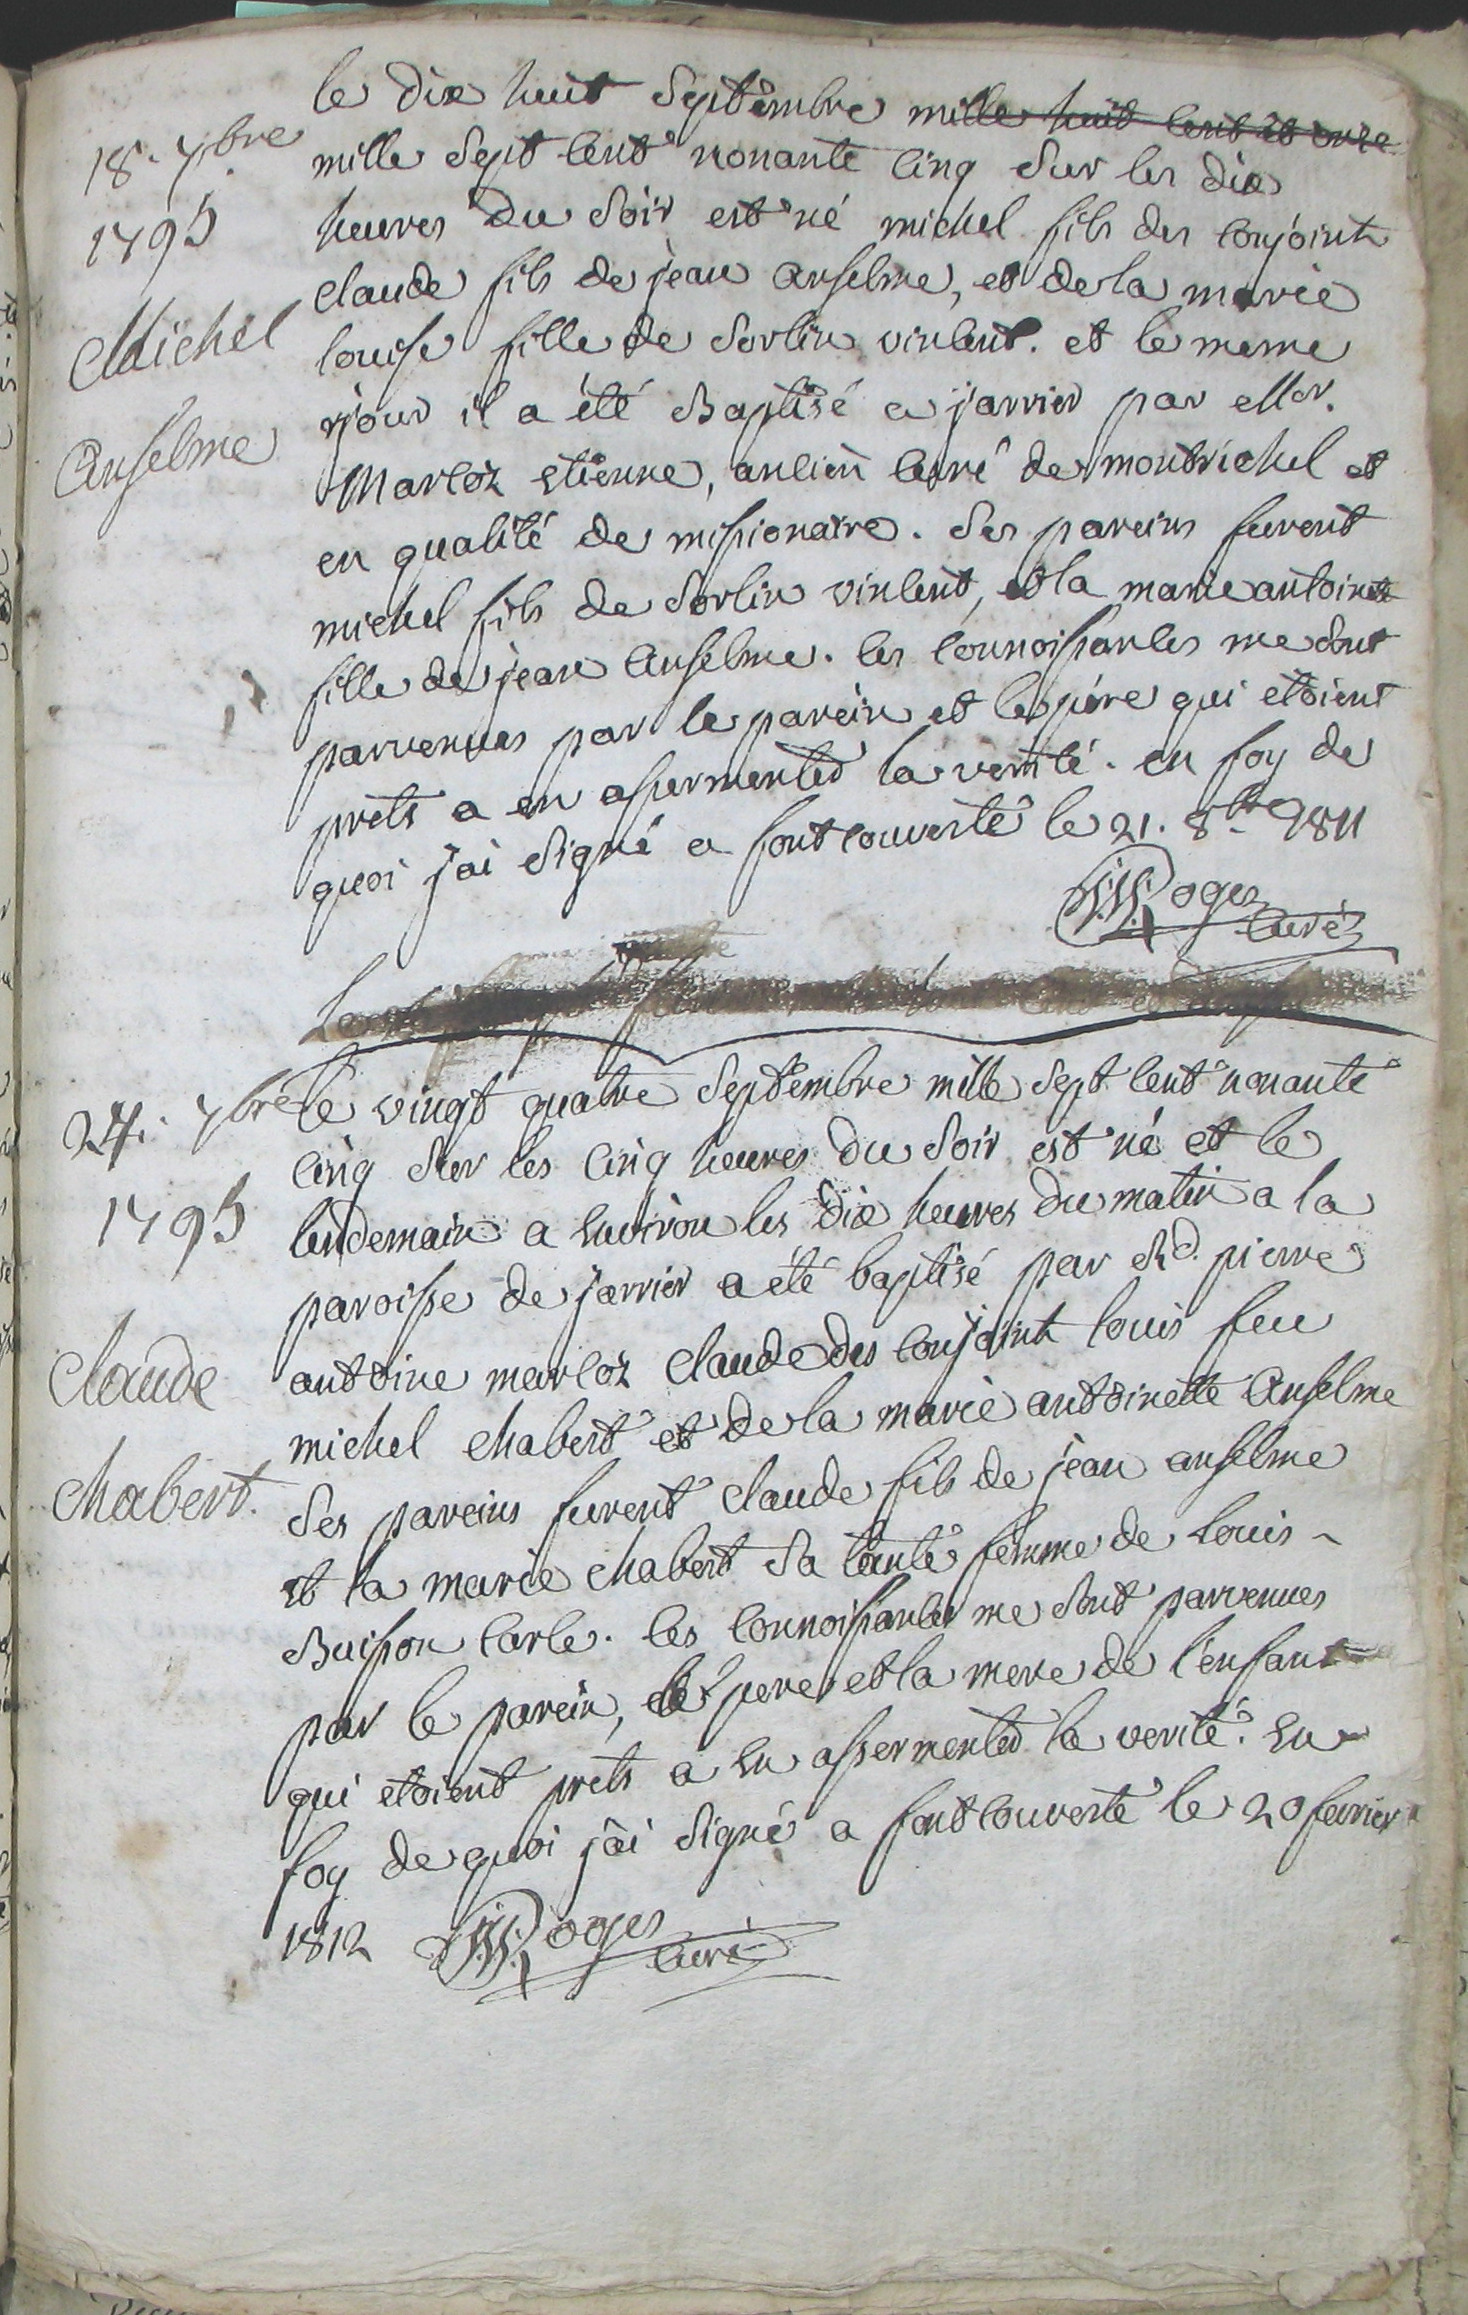 le dix huit Septembre mille huit cent et onze
18. 7bre
mille Sept cent nonante cinq Sur les dix
1795
heures du Soir est né michel fils des conjoints
claude fils de jean anselme, et de la marie
Michel
louise fille de Sorlin vincent. et le meme
jour il a été Baptisé a jarrier par Mr.
Anselme
Marcoz etienne, ancien curé de montrichel et
en qualité de missionaire. Ses pareins furent
michel fils de Sorlin vincent, et la marie antoinette
fille de jean Anselme. les connoissances me sont
parvenues par le parein et le pére qui etoient
prets a en assermenter la verité. en foy de
quoi j'ai Signé a fontcouverte le 21. 8bre 1811
Roges
curé
24. 7bre
le vingt quatre Septembre mille Sept cent nonante
cinq Sur les cinq heures du Soir est né et le
1795
lendemain a environ les dix heures du matin a la
paroisse de jarrier a été baptisé par Rd. pierre
antoine marcoz claude des conjoints louis feu
Claude
michel chabert et de la marie antoinette Anselme
Chabert.
Ses pareins furent claude fils de jean anselme
et la marie chabert Sa tante femme de louis
Buisson carle. les connoissances me sont parvenues
par le parein, le pere et la mere de l'enfant
qui etoient prets a en assermenter la verité. en
foy de quoi j'ai Signé a fontcouverte le 20 fevrier
1812
Roges
curé